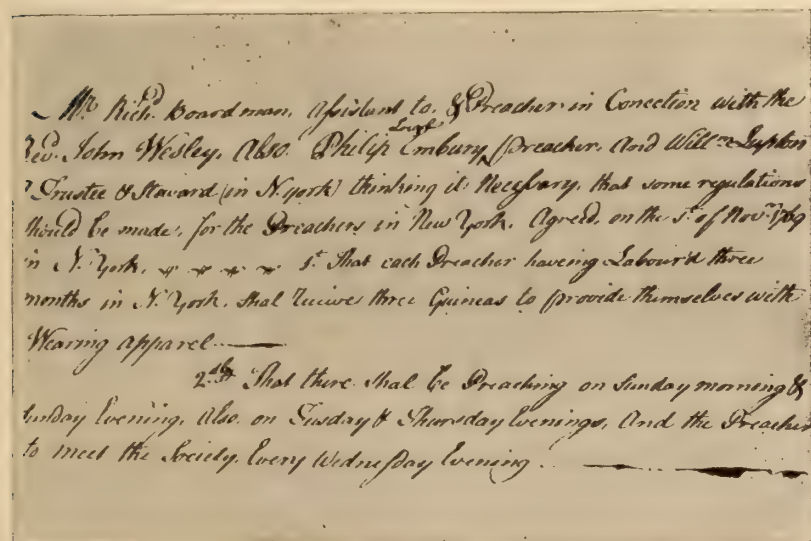 Mr Richd Boardman, Assistant to, & Preacher in Conection with the
Revd. John Wesley, Also. Philip Embury, Local preacher, And Willm Lupton
a Trustee & Staward (in N.york) thinking it Necessary, that some regulations
should be made, for the Preachers in New York. Agreed, on the 1st of Novr 1769
in N. York. 1st That each Preacher haveing Labour'd three
months in N. York. shal receive three Guineas to provide themselves with
Wearing apparel
2dly That there shal be Preaching on Sunday morning &
Sunday Evening, Also on Tusday & Thursday Evenings, And the Preacher
to meet the Society. Every Wednesday Evening.